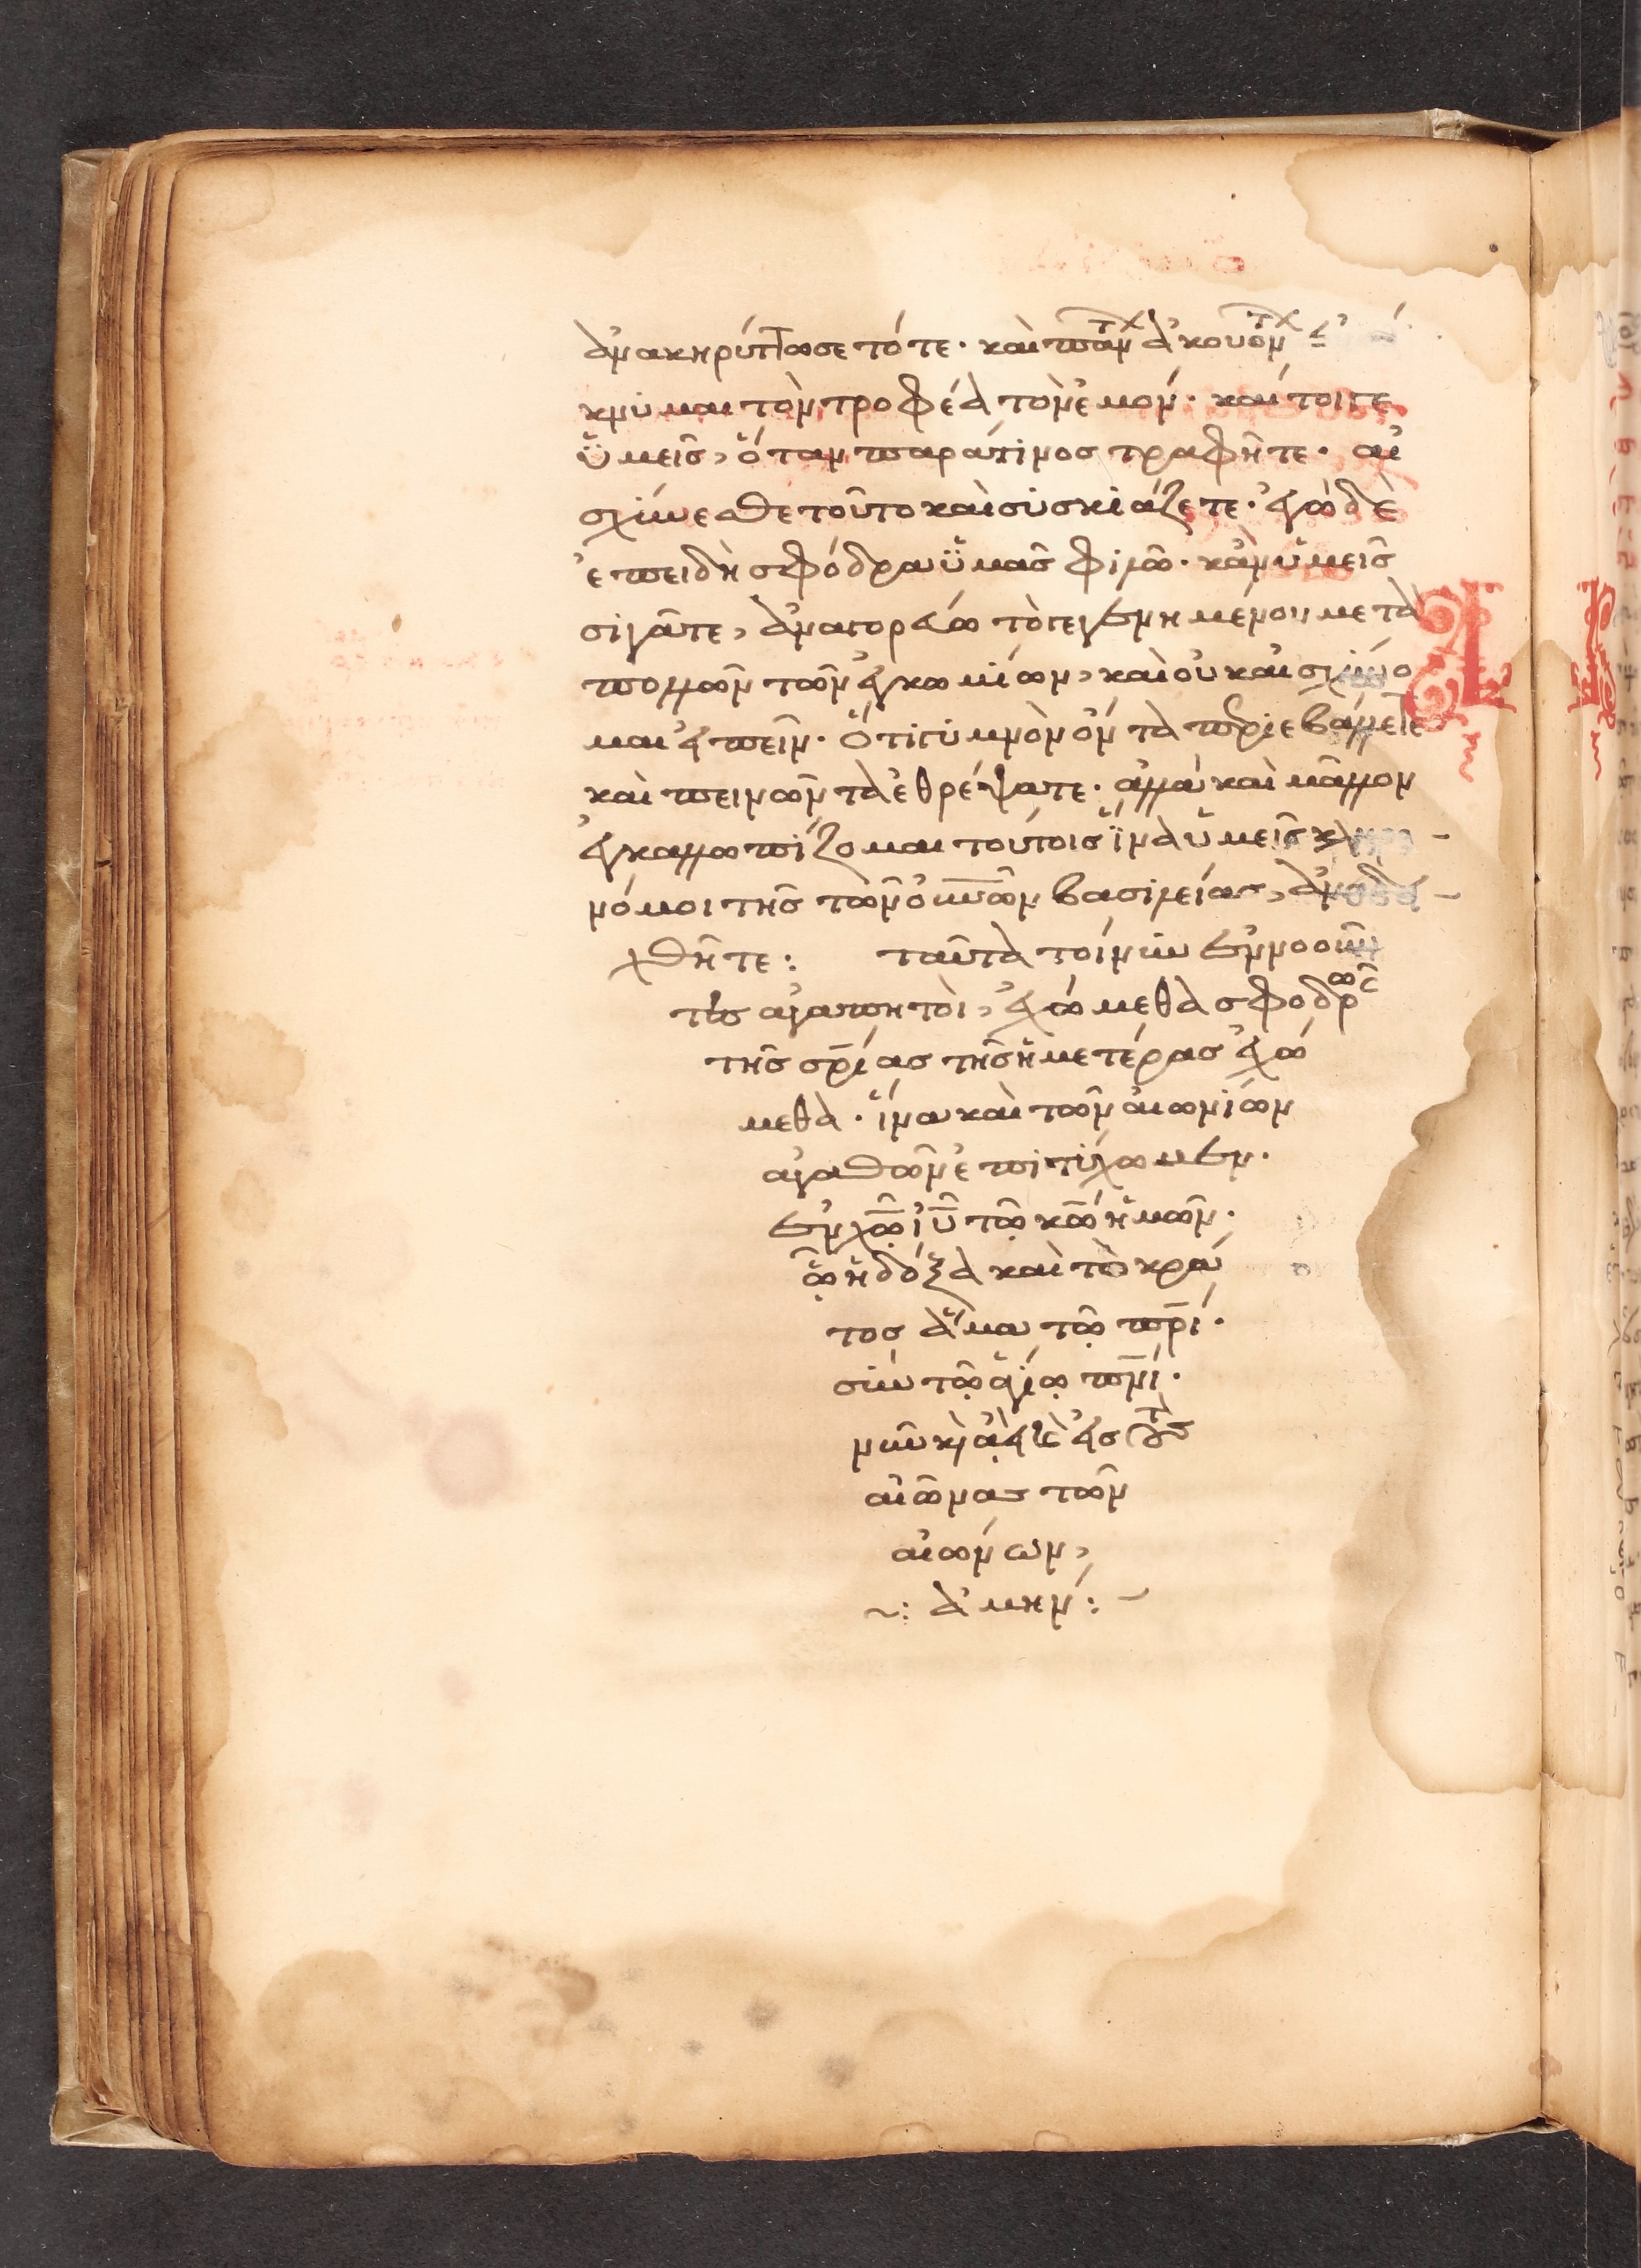 ἀνακηρύττω σε τότε· καὶ πάντ ἀκουόντ
κνυμαι τὸν τροφέα τὸν ἐμόν· καί τοι τε
ὑμεῖς, ὅταν παρά τινος τραφῆτε· αἰ
σχύνεσθε τοῦτο καὶ συσκιάζετε· ἐγὼ δὲ
ἐπειδὴ σφόδρα ὑμᾶς φιλῶ· κἂν ὑμεῖς
σιγᾶτε, ἀναγορεύω τὸ γεγενημένον μετὰ
πολλῶν τῶν ἐγκωμίων, καὶ οὐκ αἰσχύνο
μαι εἰπεῖν· ὅτι γυμνὸν ὄντα περιεβάλλετε
καὶ πεινῶντα ἐθρέψατε· ἀλλὰ καὶ μᾶλλον
ἐγκαλλωπίζομαι τούτοις ἵνα ὑμεῖς κληρο
νόμοι τῆς τῶν οὐνῶν βασιλείας, ἀναδει
χθῆτε: ταῦτα τοίνυν ἐννοοῦν
τες ἀγαπητοὶ, ἐχώμεθα σφοδρῶς
τῆς σρίας τῆς ἡμετέρας ἐχώ
μεθα· ἵνα καὶ τῶν αἰωνίων
ἀγαθῶν ἐπιτύχωμεν·
ἐν χῶ ἰῦ τῶ κῶ ἡμῶν·
ᾧ ἡ δόξα καὶ τὸ κρά
τος ἅμα τῶ πρί·
σὺν τῶ ἁγίω πνί·
νῦν κ ἀεὶ κ εἰς τοὺς
αἰῶνας τῶν
αἰώνων,
~: ἀμήν: ~